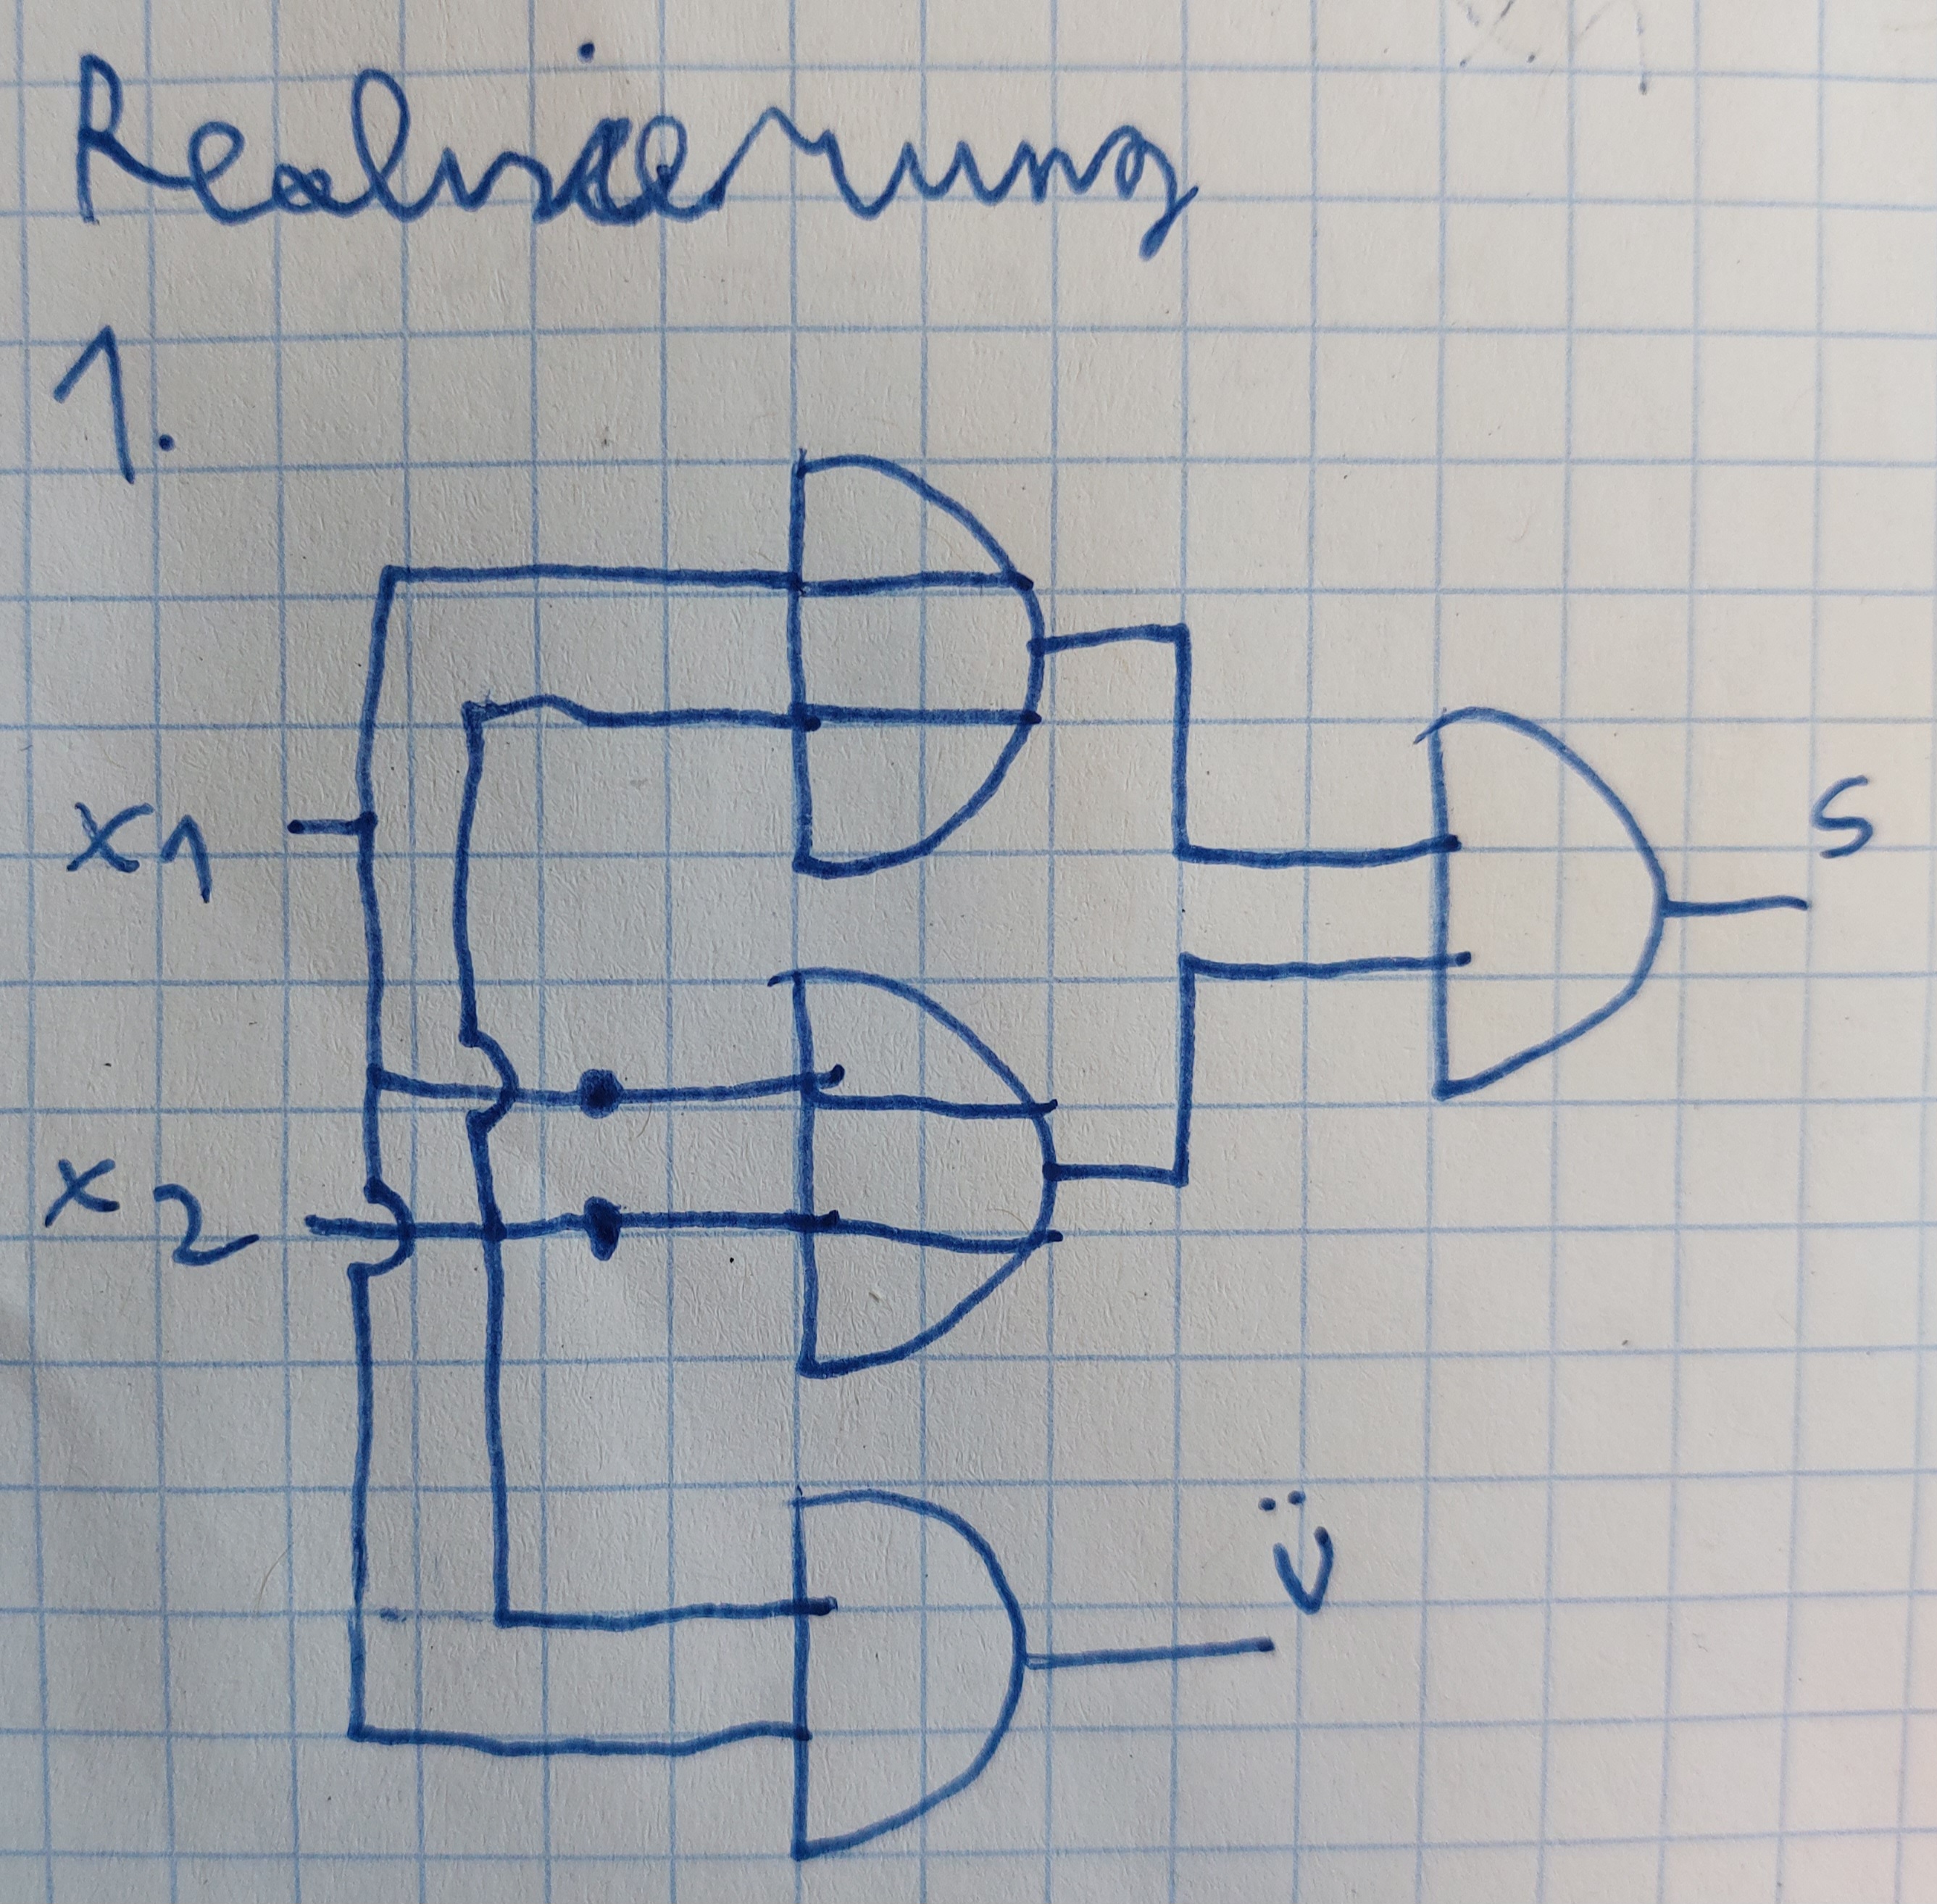 Realisierung
1.
x1
S
x2
Ü